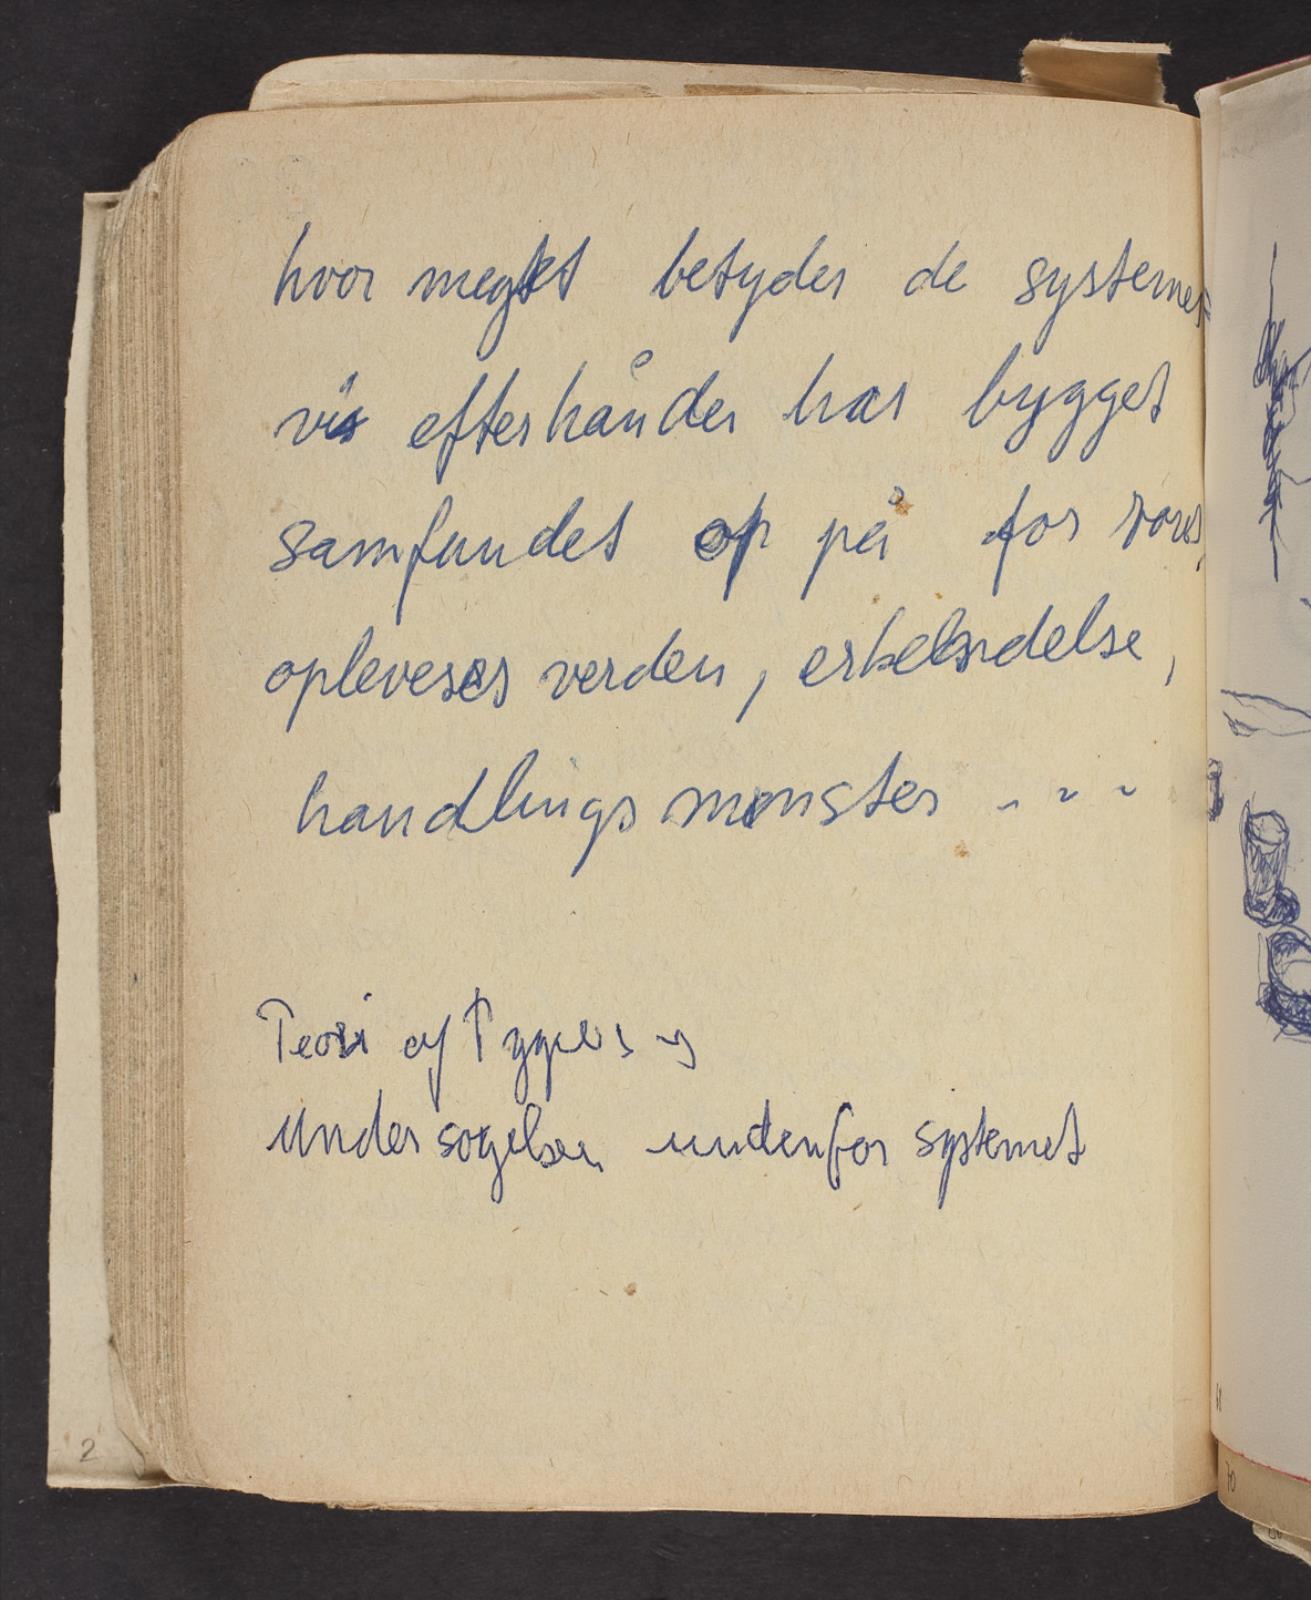 hvor meget betyder de systemer
vi efterhånden har bygget
samfundet op på for vores
oplevelses verden, erkendelse,
handlings mønster - - -
Teori of Types og
undersøgelser udenfor systemet
2
68
70